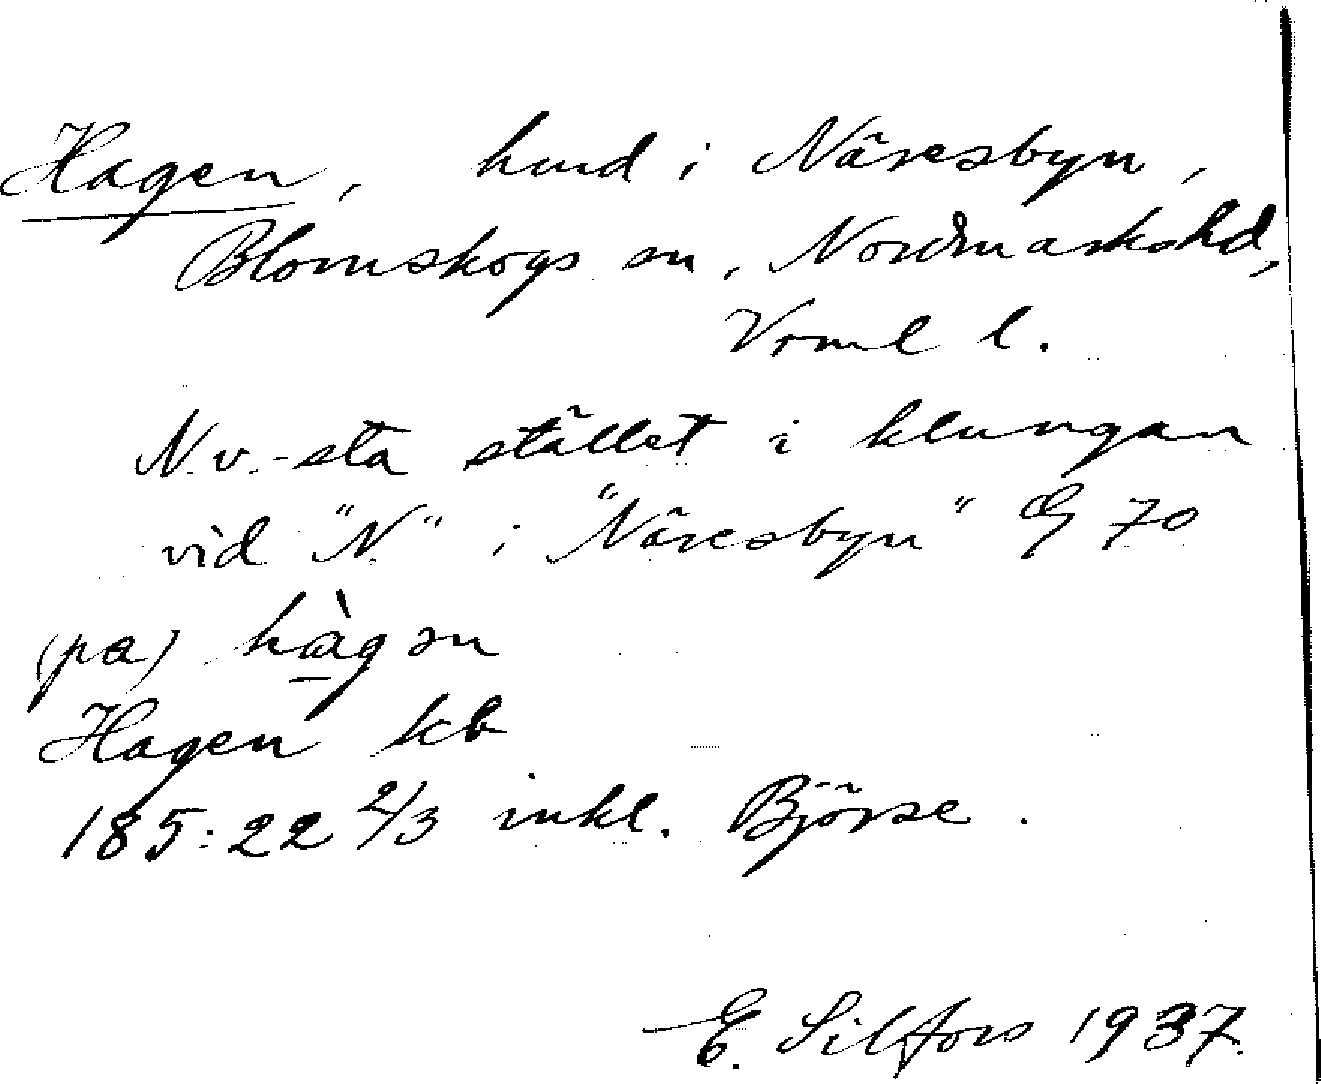 Hagen, hmd i Näresbyn,
Blomskogs sn, Nordmarks hd,
Vrml l.
N.v.-sta stället i klungan
vid "N" i "Näresbyn" G 70
(på) hàgən
Hagen kb
185:22 2/3 inkl. Björse.
E. Silfors 1937.